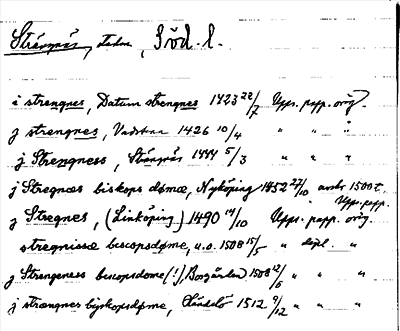 Strängnäs, staden, Söd. l.
i strengnes, Datum strengnes 1423 22/7 Upps. papp. orig.
j strengnes, Vadstena 1426 10/4 " " "
j Strengness, Strängnäs 1444 5/3 " " "
j Stregnæs biskops dømæ, Nyköping 1452 27/10 avskr 1500 t. Upps. papp.
j Stregnes, (Linköping) 1490 14/10 Upps. papp. orig.
stregnissæ bescopsdøme, u.o. 1508 15/5 " dipl. "
j Strengeness bescopsdome (!), Borgården 1508 12/6 " " "
j strængnes byskopsdøme, 1512 9/12 " " "